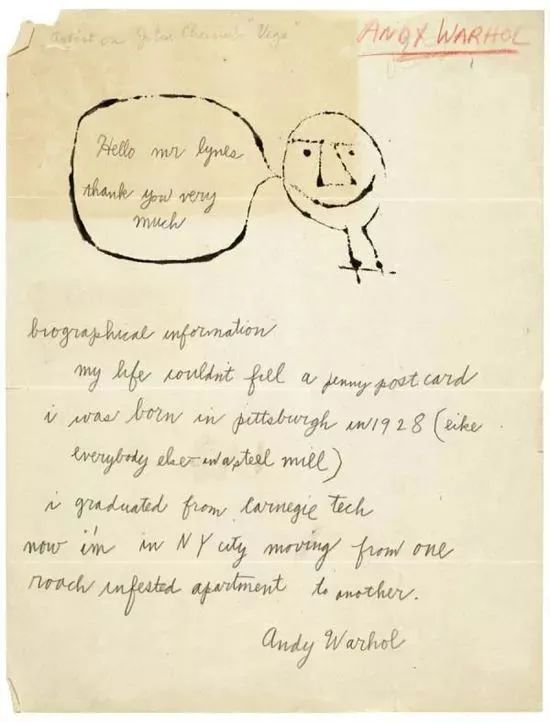 Artist on John Cheever's "Vega"
ANDY WARHOL
Hello mr lynes
thank you very
much
biographical information
my life couldnt fill a penny post card
i was born in pittsburgh in 1928 (like
everybody else - in a steel mill)
i graduated from carnegie tech
now i'm in NY city moving from one
roach infested apartment to another.
Andy Warhol